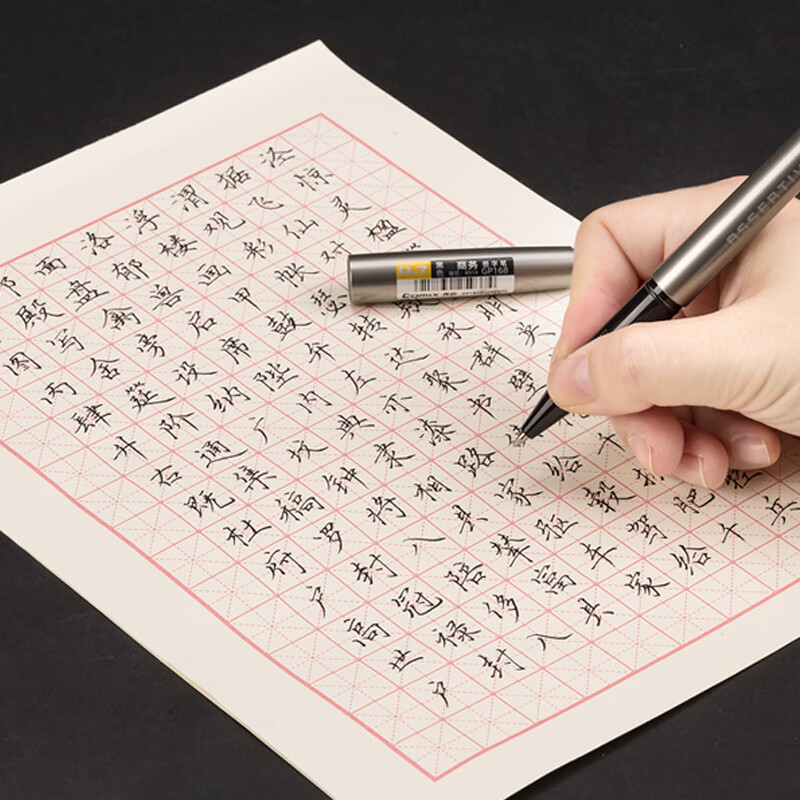 面洛浮渭据泾
殿盘郁楼观飞惊
图写禽兽画彩仙灵
丙舍旁启甲帐对楹
肆筵设席鼓瑟
升阶纳陛弁转
右通广内左达承明
既集坟典亦聚群英
杜稿钟隶漆书壁
府罗将相路
户封八县家给千
高冠陪辇驱毂
世禄侈富车驾肥轻
户封八县家给千兵
0.7 黑色 商务 签字笔 GP168
Comix